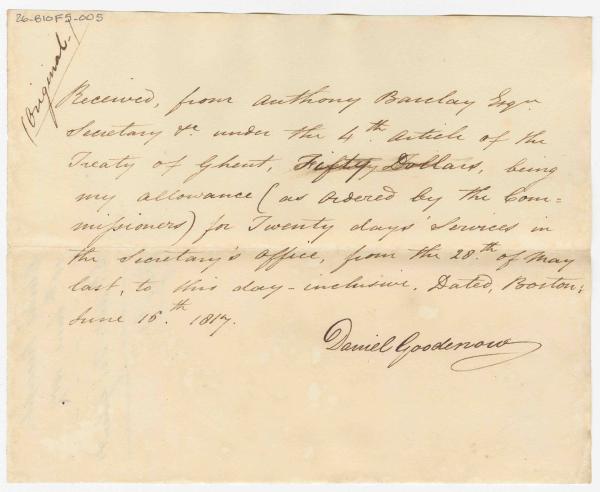 26-B10F5-005
(Original.)
Received, from Anthony Barclay Esqr
Secretary &c. under the 4th. Article of the
Treaty of Ghent, Fifty Dollars, being
my allowance (as ordered by the Com=
missioners) for Twenty days' Services in
the Secretary's Office, from the 28th. of May
last, to this day - inclusive. Dated, Boston;
June 16th. 1817.
Daniel Goodenow